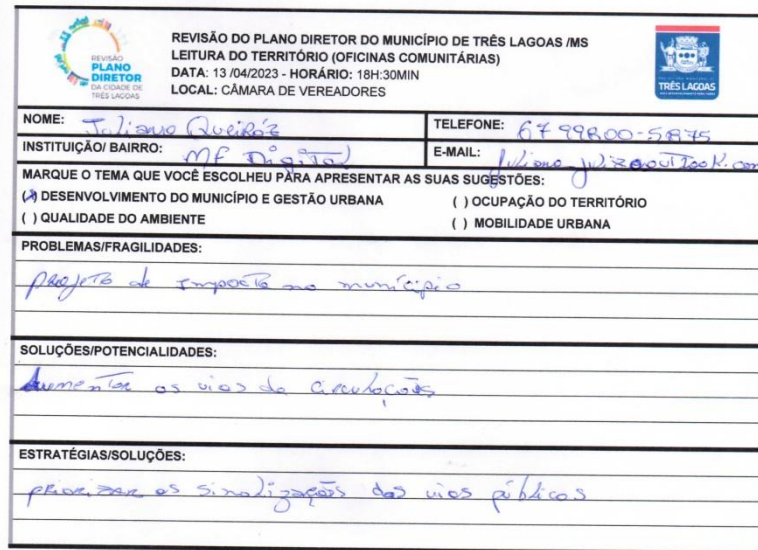 REVISÃO
PLANO
DIRETOR
DA CIDADE DE
TRÊS LAGOAS
REVISÃO DO PLANO DIRETOR DO MUNICÍPIO DE TRÊS LAGOAS /MS
LEITURA DO TERRITÓRIO (OFICINAS COMUNITÁRIAS)
DATA: 13 /04/2023 - HORÁRIO: 18H:30MIN
LOCAL: CÂMARA DE VEREADORES
TRÊS LAGOAS
NOME: Juliano Queiróz
TELEFONE: 67 99800-5875
INSTITUIÇÃO/ BAIRRO: MF Digital
E-MAIL:
MARQUE O TEMA QUE VOCÊ ESCOLHEU PARA APRESENTAR AS SUAS SUGESTÕES:
(X) DESENVOLVIMENTO DO MUNICÍPIO E GESTÃO URBANA
( ) OCUPAÇÃO DO TERRITÓRIO
( ) QUALIDADE DO AMBIENTE
( ) MOBILIDADE URBANA
PROBLEMAS/FRAGILIDADES:
projeto de impacto no município
SOLUÇÕES/POTENCIALIDADES:
Aumentar as vias de circulações
ESTRATÉGIAS/SOLUÇÕES:
priorizar as sinalizações das vias públicas